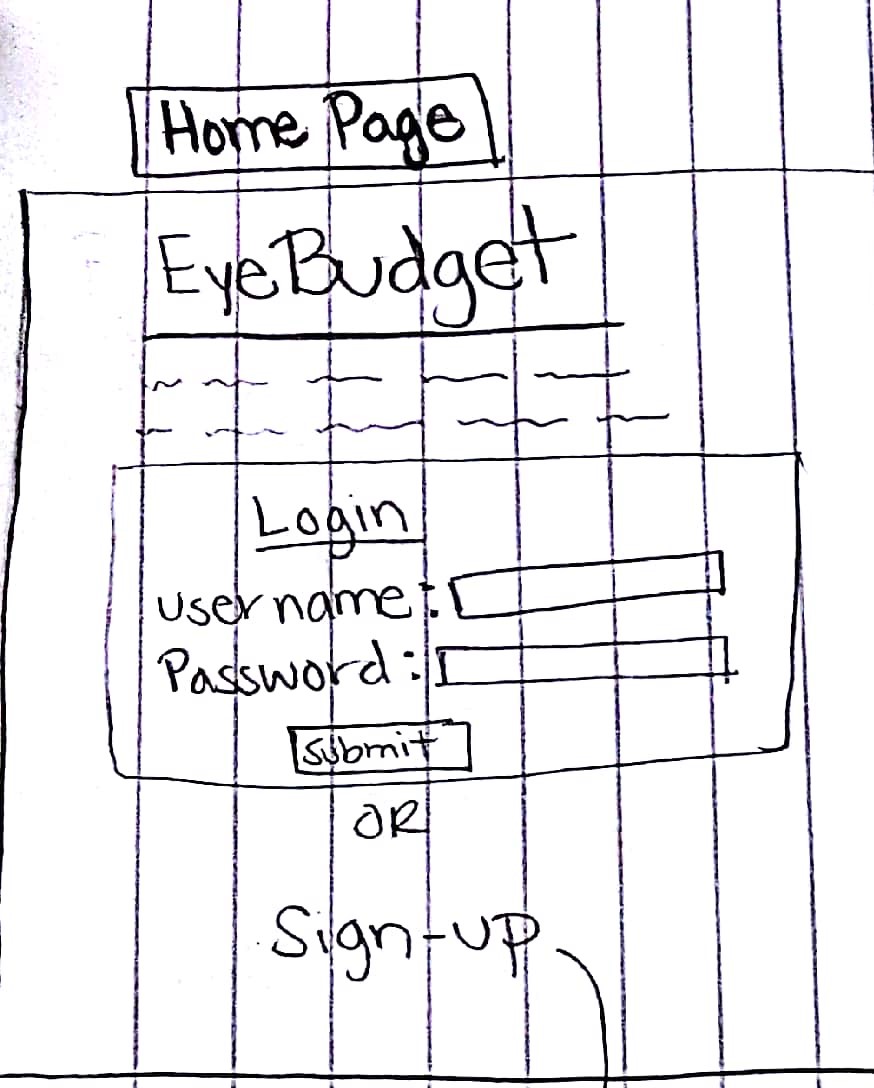 Home Page
EyeBudget
Login
username:
Password:
submit
OR
Sign-up